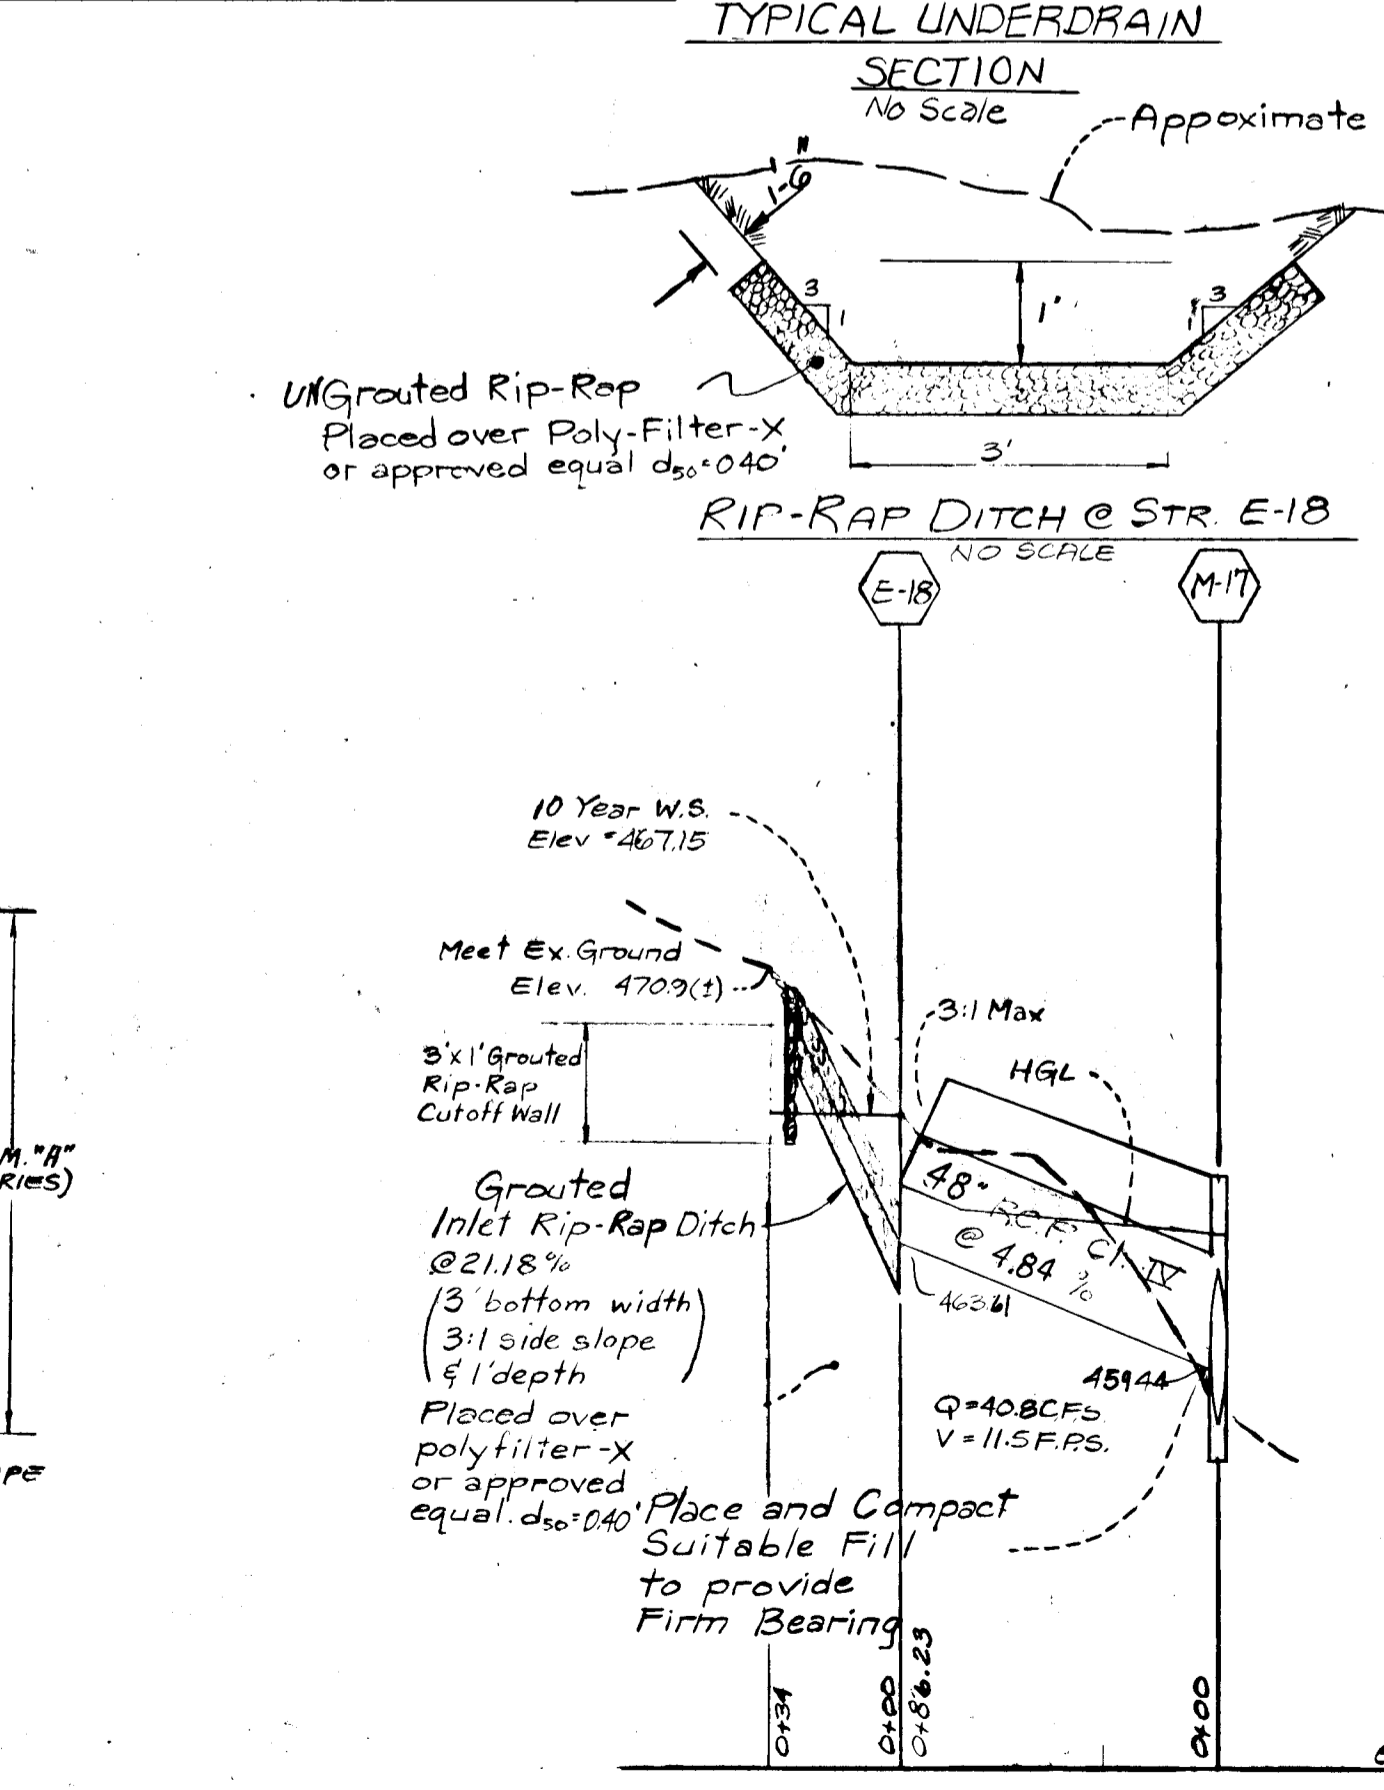 TYPICAL UNDERDRAIN
SECTION
No Scale
Appoximate
1'-6"
3
1
1'
3
1
UNGrouted Rip-Rap
Placed over Poly-Filter-X
or approved equal d50=040'
3'
RIP-RAP DITCH @ STR. E-18
NO SCALE
E-18
M-17
10 Year W.S.
Elev = 467.15
Meet Ex. Ground
Elev. 470.9(±)
3:1 Max
HGL
3'x1' Grouted
Rip-Rap
Cutoff Wall
M. "A"
RIES)
48" R.C.P. Cl. IV
@ 4.84 %
Grouted
Inlet Rip-Rap Ditch
@ 21.18 %
(3' bottom width)
3:1 side slope
& 1' depth
463.61
459.44
Placed over
polyfilter-X
or approved
equal. d50=0.40'
Q=40.8 C.F.S.
V=11.5 F.P.S.
PE
Place and Compact
Suitable Fill
to provide
Firm Bearing
0+34
0+00
0+86.23
0+00